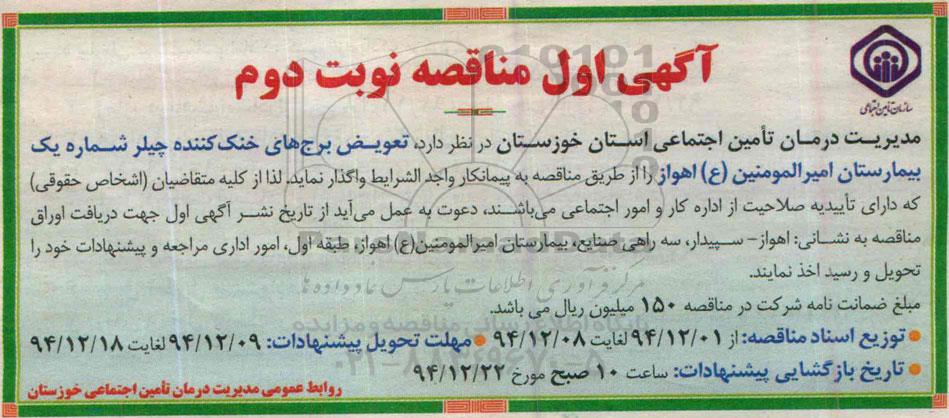 آگهی اول مناقصه نوبت دوم
سازمان تأمین اجتماعی
مدیریت درمان تأمین اجتماعی استان خوزستان در نظر دارد، تعویض برج‌های خنک‌کننده چیلر شماره یک
بیمارستان امیرالمومنین (ع) اهواز را از طریق مناقصه به پیمانکار واجد الشرایط واگذار نماید. لذا از کلیه متقاضیان (اشخاص حقوقی)
که دارای تأییدیه صلاحیت از اداره کار و امور اجتماعی می‌باشند، دعوت به عمل می‌آید از تاریخ نشر آگهی اول جهت دریافت اوراق
مناقصه به نشانی: اهواز- سپیدار، سه راهی صنایع، بیمارستان امیرالمومنین(ع) اهواز، طبقه اول، امور اداری مراجعه و پیشنهادات خود را
تحویل و رسید اخذ نمایند.
مبلغ ضمانت نامه شرکت در مناقصه ۱۵۰ میلیون ریال می باشد.
• توزیع اسناد مناقصه: از ۹۴/۱۲/۰۱ لغایت ۹۴/۱۲/۰۸ • مهلت تحویل پیشنهادات: ۹۴/۱۲/۰۹ لغایت ۹۴/۱۲/۱۸
• تاریخ بازگشایی پیشنهادات: ساعت ۱۰ صبح مورخ ۹۴/۱۲/۲۲
روابط عمومی مدیریت درمان تأمین اجتماعی خوزستان
مرکز فرآوری اطلاعات پارس نماد داده‌ها
۰۲۱-۸۸۳۴۹۶۷۰-۵